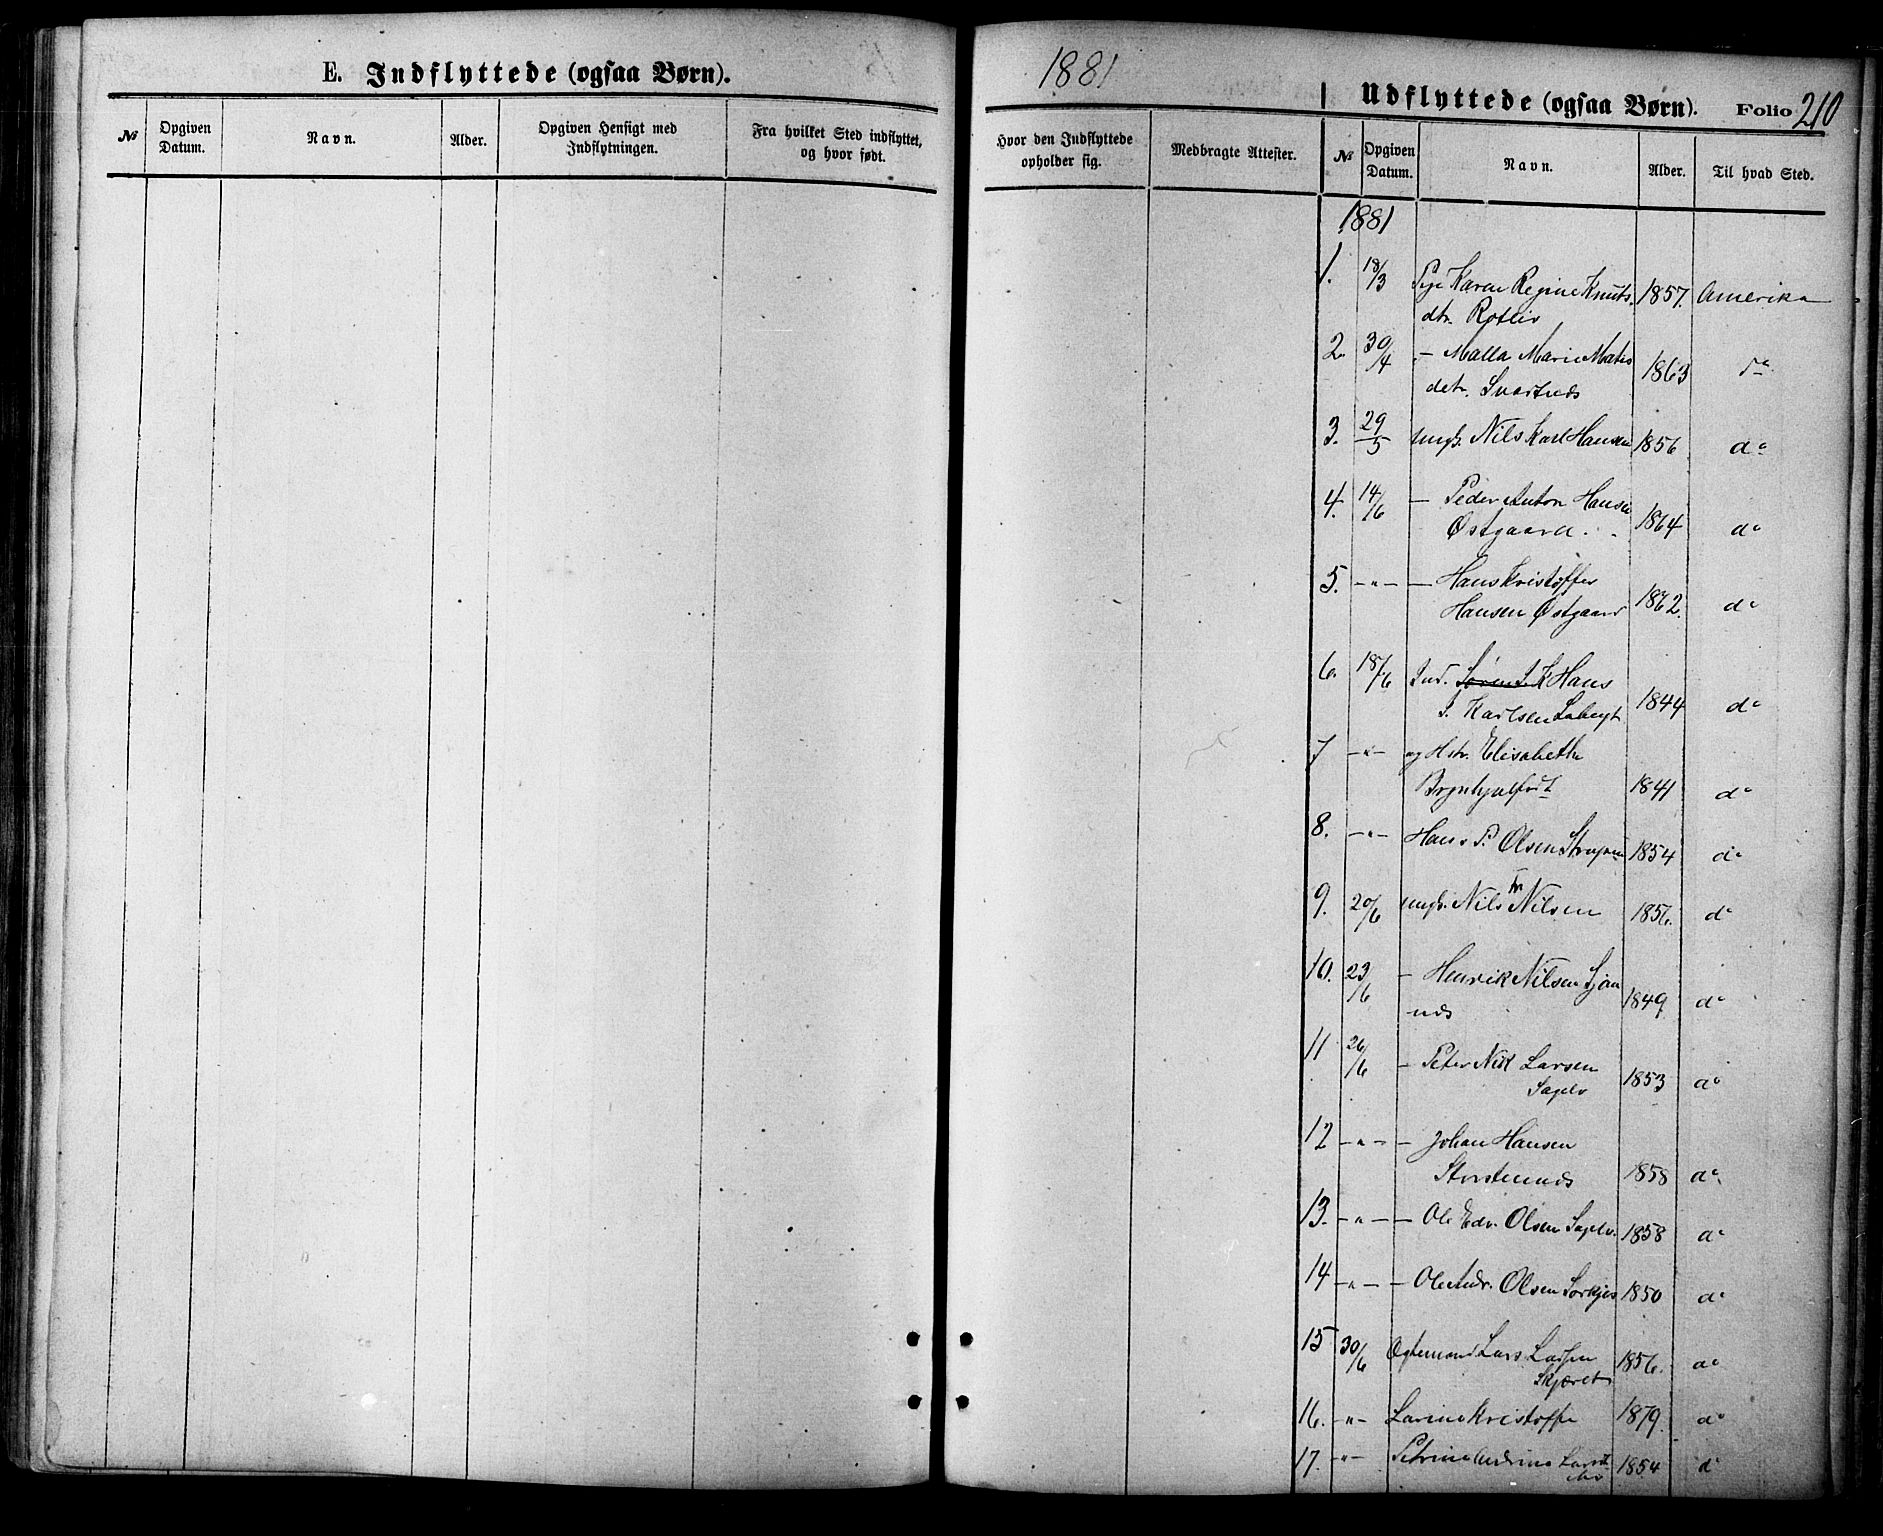 E. Indflyttede (ogsaa Børn).
№
Opgiven Datum.
Navn.
Alder.
Opgiven Hensigt med Indflytningen.
Fra hvilket Sted indflyttet, og hvor født.
1881
Udflyttede (ogsaa Børn). Folio 210
Hvor den Indflyttede opholder sig.
Medbragte Attester.
№
Opgiven Datum.
Navn.
Alder.
Til hvad Sted.
1881
1. 18/3 Pige Karen Regine Knuts 1857. Amerika
dtr.
2. 30/4 — Malla Marie Mats 1863 do
dtr. Svartnæs
3. 29/5 ungk. Nils Karl Hansen 1856 do
4. 14/6 — Peder Anton Hansen
Østgaard 1864 do
5. —"— — Hans Kristoffer
Hansen Østgaard 1862. do
6. 18/6 Ind. Hans
Karlsen 1844 do
7 —"— og Hstr. Elisabeth
1841 do
8. —"— Hans P. Olsen 1854 do
9. 20/6 ungk. Nils Fr. Nilsen 1856. do
10. 23/6 — Henrik Nilsen
næs 1849 do
11 26/6 — Peter Nik Larsen
Sagelv 1853 do
12 —"— — Johan Hansen
Storstennæs 1858 do
13. —"— — Ole Edv. Olsen Sagelv. 1858 do
14 —"— — Ole Andr. Olsen Sørkjos 1850 do
15 30/6 Ægtemand Lars Larsen
Skjæret 1856. do
16. —"— Larine Kristoffa 1879. do
17. —"— Petrine Andrina 1854 d